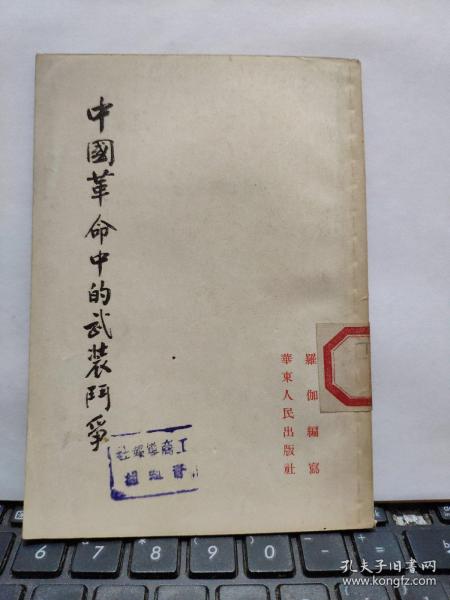 中國革命中的武裝鬥爭
羅伽編寫
華東人民出版社
6 7 8 9 0
孔夫子旧书网
www.kongfz.com